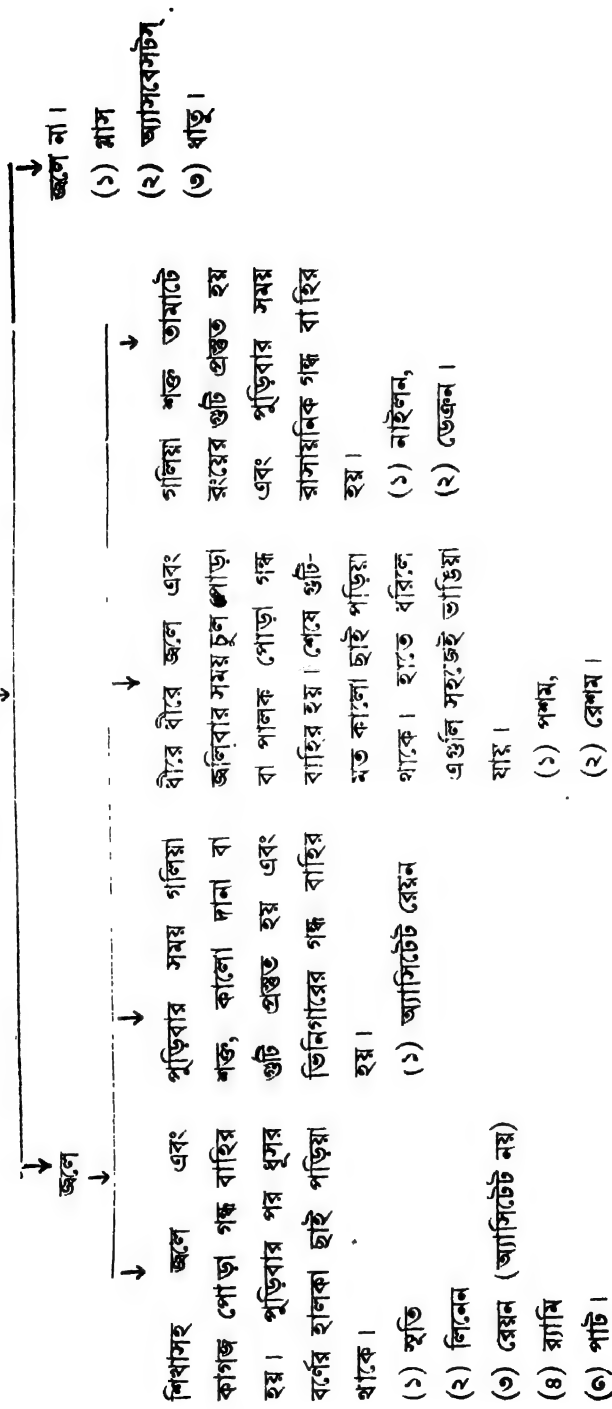 জ্বলে
শিখাসহ জ্বলে এবং
কাগজ পোড়া গন্ধ বাহির
হয়। পুড়িবার পর ধূসর
বর্ণের হালকা ছাই পড়িয়া
থাকে।
(১) সূতি
(২) লিনেন
(৩) রেয়ন (অ্যাসিটেট নয়)
(৪) র‍্যামি
(৫) পাট।
পুড়িবার সময় গলিয়া
শক্ত, কালো দানা বা
গুটি প্রস্তুত হয় এবং
ভিনিগারের গন্ধ বাহির
হয়।
(১) অ্যাসিটেট রেয়ন
ধীরে ধীরে জ্বলে এবং
জ্বলিবার সময় চুল পোড়া
বা পালক পোড়া গন্ধ
বাহির হয়। শেষে গুটি-
মত কালো ছাই পড়িয়া
থাকে। হাতে ধরিলে
এগুলি সহজেই ভাঙিয়া
যায়।
(১) পশম,
(২) রেশম।
গলিয়া শক্ত তামাটে
রংয়ের গুটি প্রস্তুত হয়
এবং পুড়িবার সময়
রাসায়নিক গন্ধ বাহির
হয়।
(১) নাইলন,
(২) ডেক্রন।
জ্বলে না।
(১) গ্লাস
(২) অ্যাসবেসটস্
(৩) ধাতু।